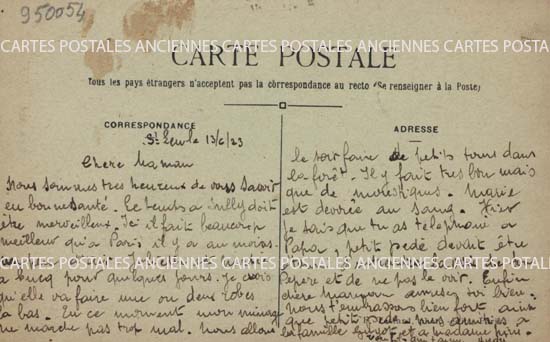 950054
CARTES POSTALES ANCIENNES CARTES POSTALES ANCIENNES CARTES POSTAL
CARTE POSTALE
Tous les pays étrangers n'acceptent pas la correspondance au recto (Se renseigner à la Poste)
CORRESPONDANCE
St Leu le 13/6/23
Chère Maman
Nous sommes très heureux de vous savoir
en bonne santé. Le temps à Sully doit
être merveilleux. Ici il fait beaucoup
meilleur qu'à Paris il y a au moins
à Cucq pour quelques jours. Je crois
qu'elle va faire une ou deux robes
la bas. En ce moment mon ménage
ne marche pas trop mal. Nous allons
ADRESSE
le soir faire de petits tours dans
la forêt. Il y fait très bon mais
que de moustiques. Marie
est dévorée au sang. Hier
je sais que tu as téléphoné à
Papa, petit pédé devait être
Pépère et de ne pas le voir. Enfin
chère maman amuse toi bien.
Nous t'embrassons bien fort ainsi
que petit nos amitiés à
la famille et à madame